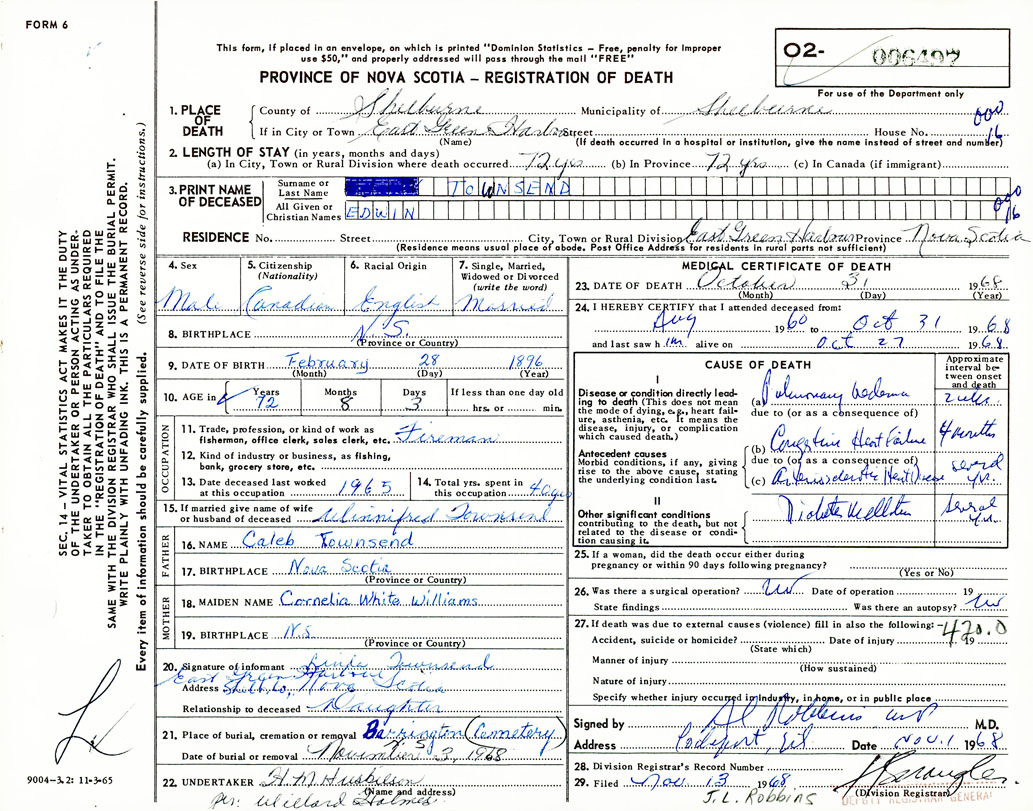 FORM 6
02- 006497
This form, if placed in an envelope, on which is printed "Dominion Statistics – Free, penalty for improper
use $50," and properly addressed will pass through the mail "FREE"
PROVINCE OF NOVA SCOTIA – REGISTRATION OF DEATH
For use of the Department only
1. PLACE OF DEATH County of Shelburne Municipality of Shelburne 000
If in City or Town East Green Harbour Street House No. 16
(Name) (If death occurred in a hospital or institution, give the name instead of street and number)
2. LENGTH OF STAY (in years, months and days)
(a) In City, Town or Rural Division where death occurred 72 yrs (b) In Province 72 yrs (c) In Canada (if immigrant)
3. PRINT NAME OF DECEASED Surname or Last Name TOWNSEND
All Given or Christian Names EDWIN 000 16
RESIDENCE No. Street City, Town or Rural Division East Green Harbour Province Nova Scotia
(Residence means usual place of abode. Post Office Address for residents in rural parts not sufficient)
SEC. 14 – VITAL STATISTICS ACT MAKES IT THE DUTY
OF THE UNDERTAKER OR PERSON ACTING AS UNDER-
TAKER TO OBTAIN ALL THE PARTICULARS REQUIRED
IN THE "REGISTRATION OF DEATH" AND TO FILE THE
SAME WITH THE DIVISION REGISTRAR WHO SHALL ISSUE THE BURIAL PERMIT.
WRITE PLAINLY WITH UNFADING INK. THIS IS A PERMANENT RECORD.
Every item of information should be carefully supplied. (See reverse side for instructions.)
4. Sex 5. Citizenship (Nationality) 6. Racial Origin 7. Single, Married, Widowed or Divorced (write the word)
Male Canadian English Married
8. BIRTHPLACE N.S.
(Province or Country)
9. DATE OF BIRTH February 28 1896
(Month) (Day) (Year)
10. AGE in Years Months Days If less than one day old
72 8 3 hrs. or min.
OCCUPATION
11. Trade, profession, or kind of work as
fisherman, office clerk, sales clerk, etc. Fireman
12. Kind of industry or business, as fishing,
bank, grocery store, etc.
13. Date deceased last worked at this occupation 1965 14. Total yrs. spent in this occupation 40 yrs
15. If married give name of wife
or husband of deceased Winnifred Townsend
FATHER
16. NAME Caleb Townsend
17. BIRTHPLACE Nova Scotia
(Province or Country)
MOTHER
18. MAIDEN NAME Cornelia White Williams
19. BIRTHPLACE N.S
(Province or Country)
20. Signature of informant Linda Townsend
East Green Harbour
Address Shelb. Co., Nova Scotia
Relationship to deceased Daughter
21. Place of burial, cremation or removal Barrington (Cemetery)
Date of burial or removal November 3, 1968
22. UNDERTAKER H. M. Huskilson
(Name and address)
per: Willard Holmes
MEDICAL CERTIFICATE OF DEATH
23. DATE OF DEATH October 31 1968
(Month) (Day) (Year)
24. I HEREBY CERTIFY that I attended deceased from:
Aug 1960 to Oct 31 1968
and last saw him alive on Oct 27 1968
CAUSE OF DEATH Approximate interval between onset and death
I
Disease or condition directly leading to death (This does not mean the mode of dying, e.g., heart failure, asthenia, etc. It means the disease, injury, or complication which caused death.)
(a) Pulmonary oedema
due to (or as a consequence of)
(b) Congestive Heart Failure 4 months
Antecedent causes
Morbid conditions, if any, giving rise to the above cause, stating the underlying condition last.
due to (or as a consequence of)
(c) Arteriosclerotic Heart Disease several yrs.
II
Other significant conditions
contributing to the death, but not related to the disease or condition causing it.
Diabetes Mellitus several yrs.
25. If a woman, did the death occur either during
pregnancy or within 90 days following pregnancy?
(Yes or No)
26. Was there a surgical operation? no Date of operation 19
State findings Was there an autopsy? no
27. If death was due to external causes (violence) fill in also the following: 420.0
Accident, suicide or homicide? Date of injury 19
(State which)
Manner of injury
(How sustained)
Nature of injury
Specify whether injury occurred in industry, in home, or in public place
Signed by Robbins M.D.
Address Lockeport, N.S. Date Nov. 1 1968
28. Division Registrar's Record Number
29. Filed Nov. 13 1968
(Division Registrar)
DEPUTY REGISTRAR GENERAL
J.L. Robbins
9004-3.2: 11-3-65